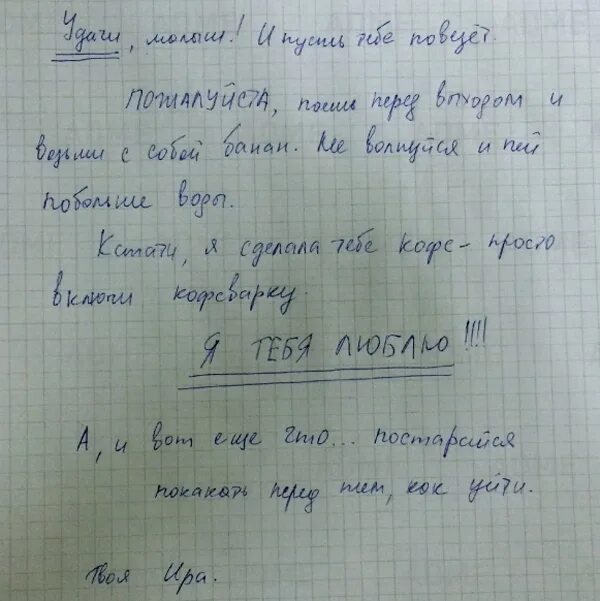 Удачи, малыш! И пусть тебе повезёт.
ПОЖАЛУЙСТА, поешь перед выходом и
возьми с собой банан. Не волнуйся и пей
побольше воды.
Кстати, я сделала тебе кофе – просто
включи кофеварку.
Я ТЕБЯ ЛЮБЛЮ!!!!
А, и вот еще что... постарайся
покакать перед тем, как уйти.
Твоя Ира.